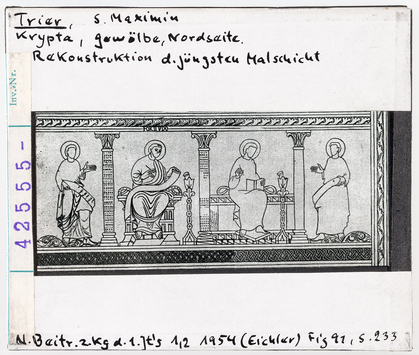 Trier, S. Maximin
Krypta, gewölbe, Nordseite.
Rekonstruktion d. jüngsten Malschicht
Inv.Nr.
42555-
N. Beitr. z. Kg d. 1. Jt's 1/2 1954 (Eichler) Fig 91, S. 233